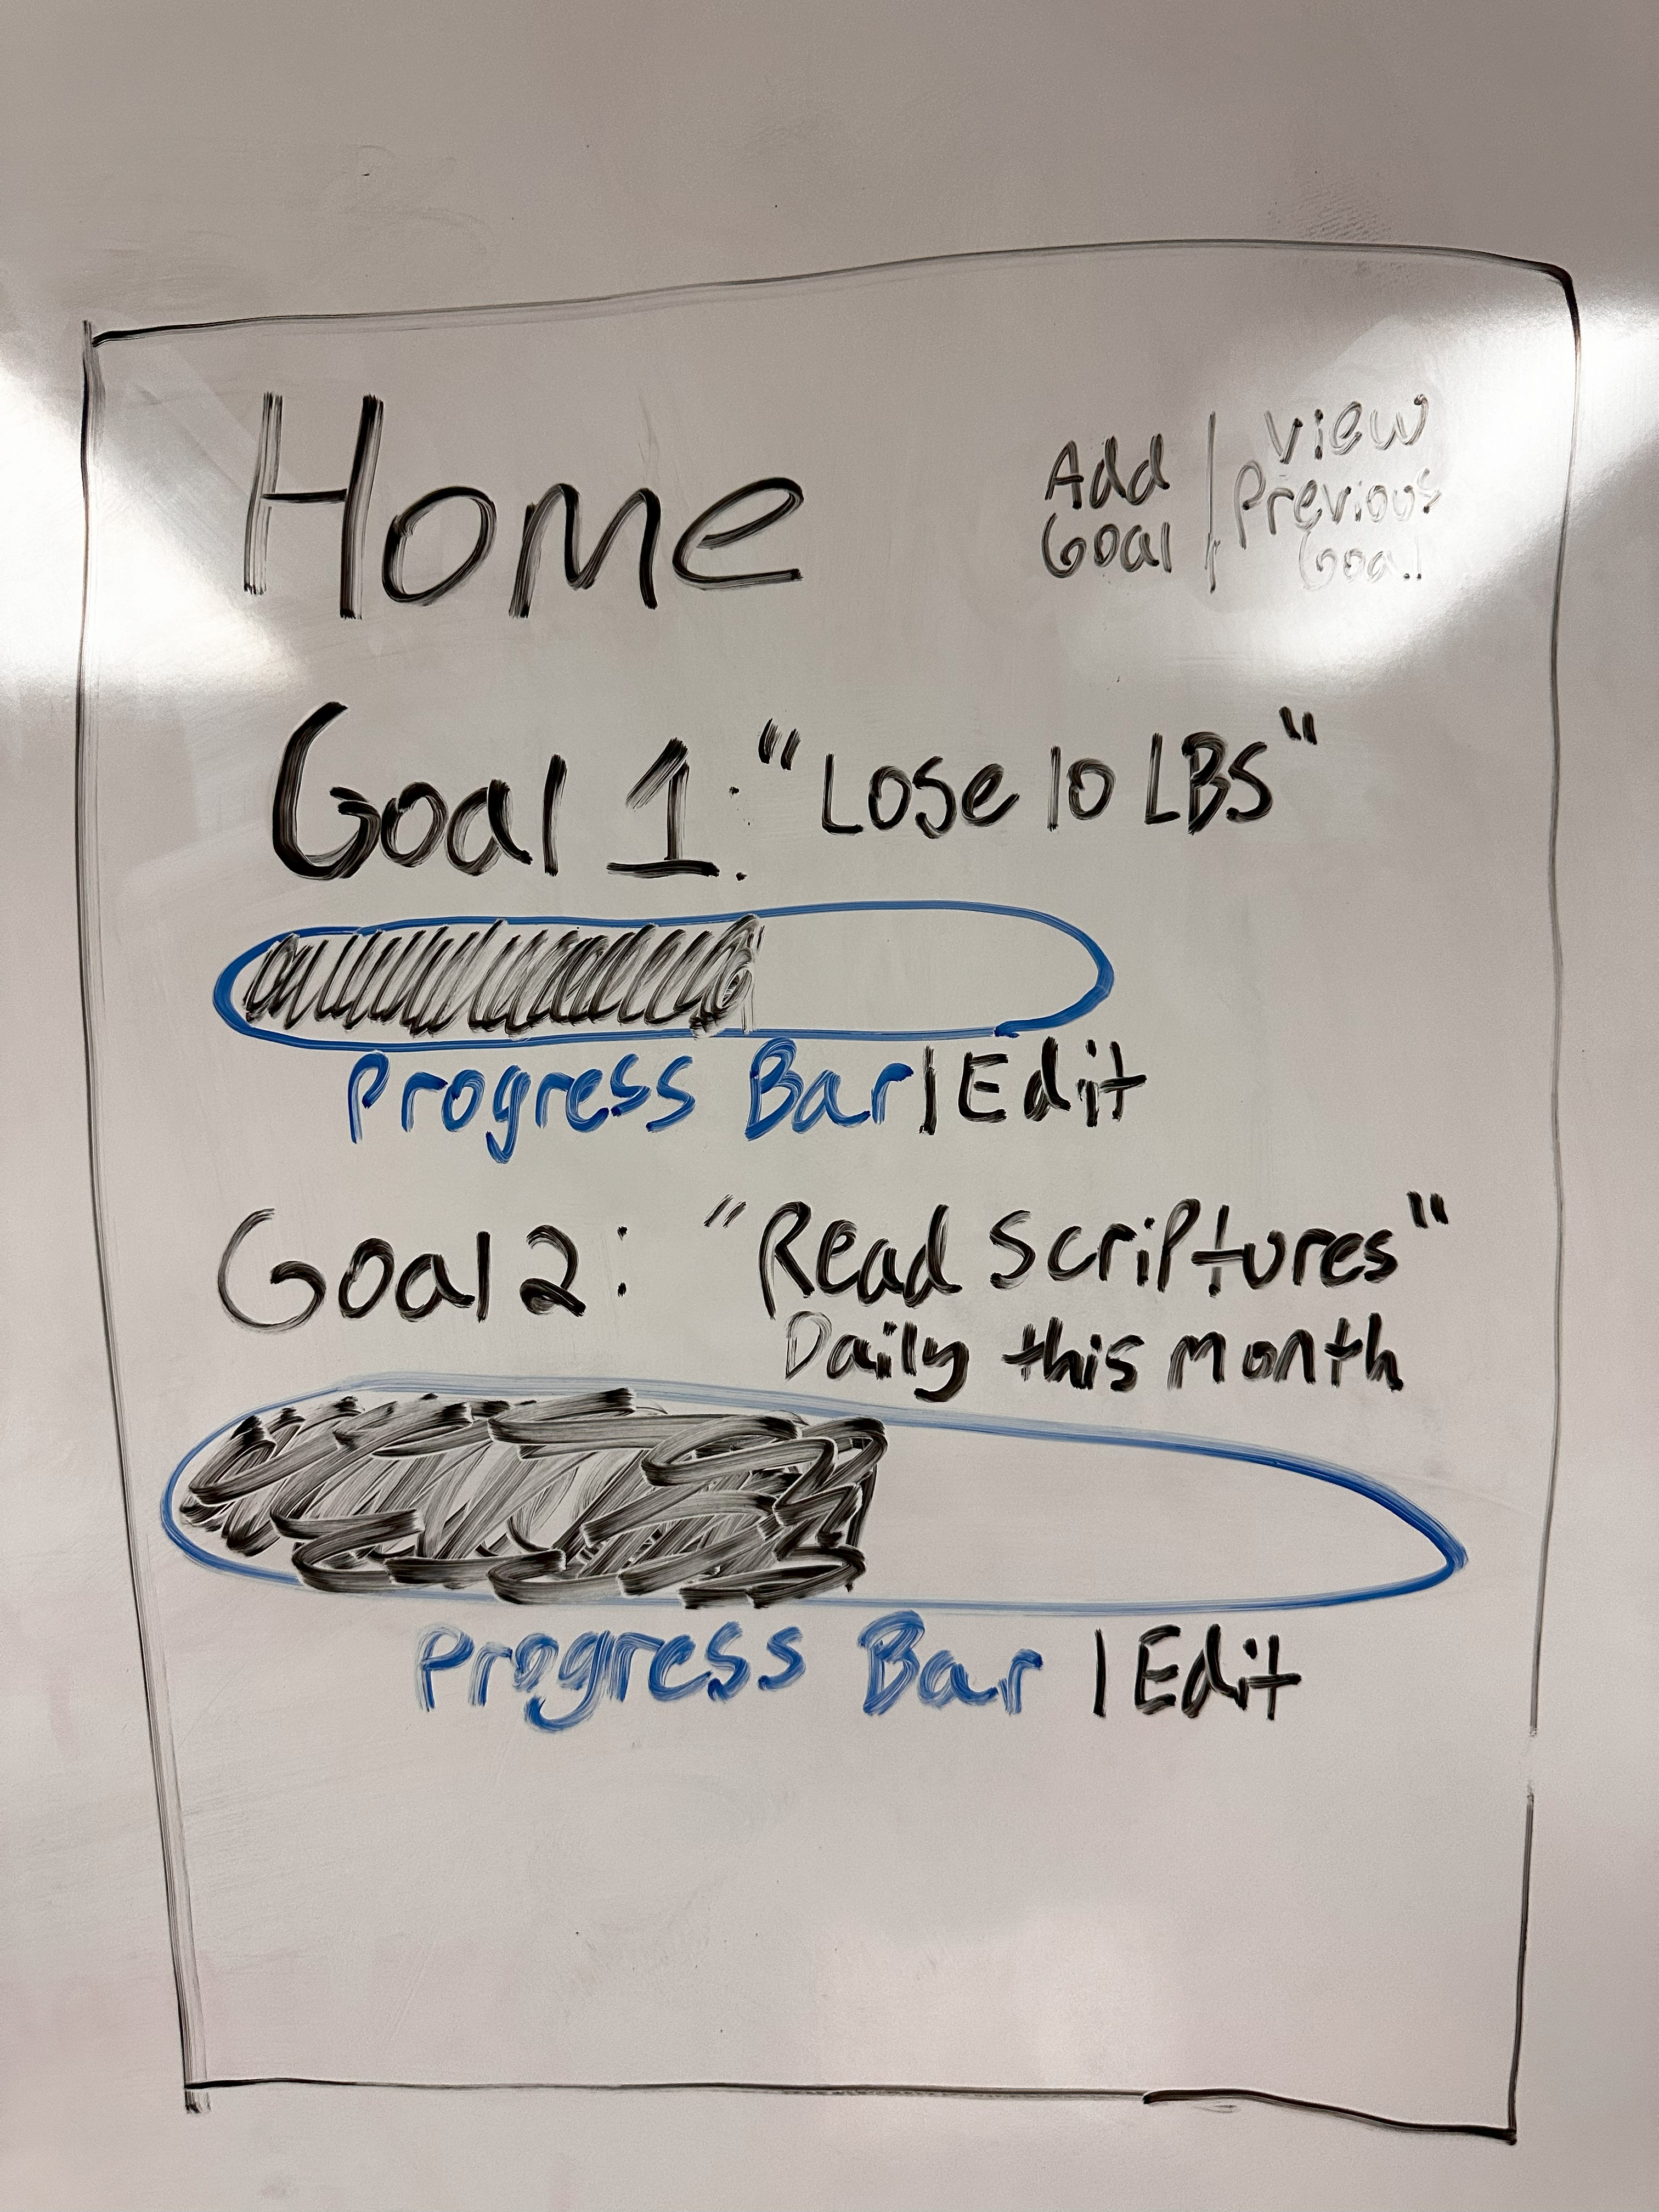 Home
Add
Goal |
View
Previous
Goal
Goal 1: "Lose 10 LBS"
Progress Bar | Edit
Goal 2: "Read Scriptures"
Daily this month
Progress Bar | Edit